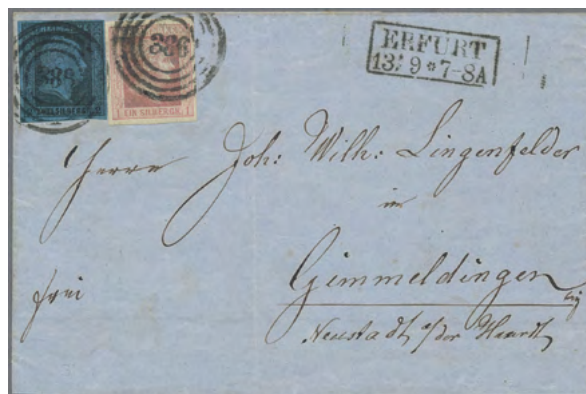 386
386
EIN SILBERGR.
ERFURT
13/9 * 7-8A
Herrn Joh: Wilh: Lingenfelder
in
Gimmeldingen
frei
Neustadt a/der Haardt